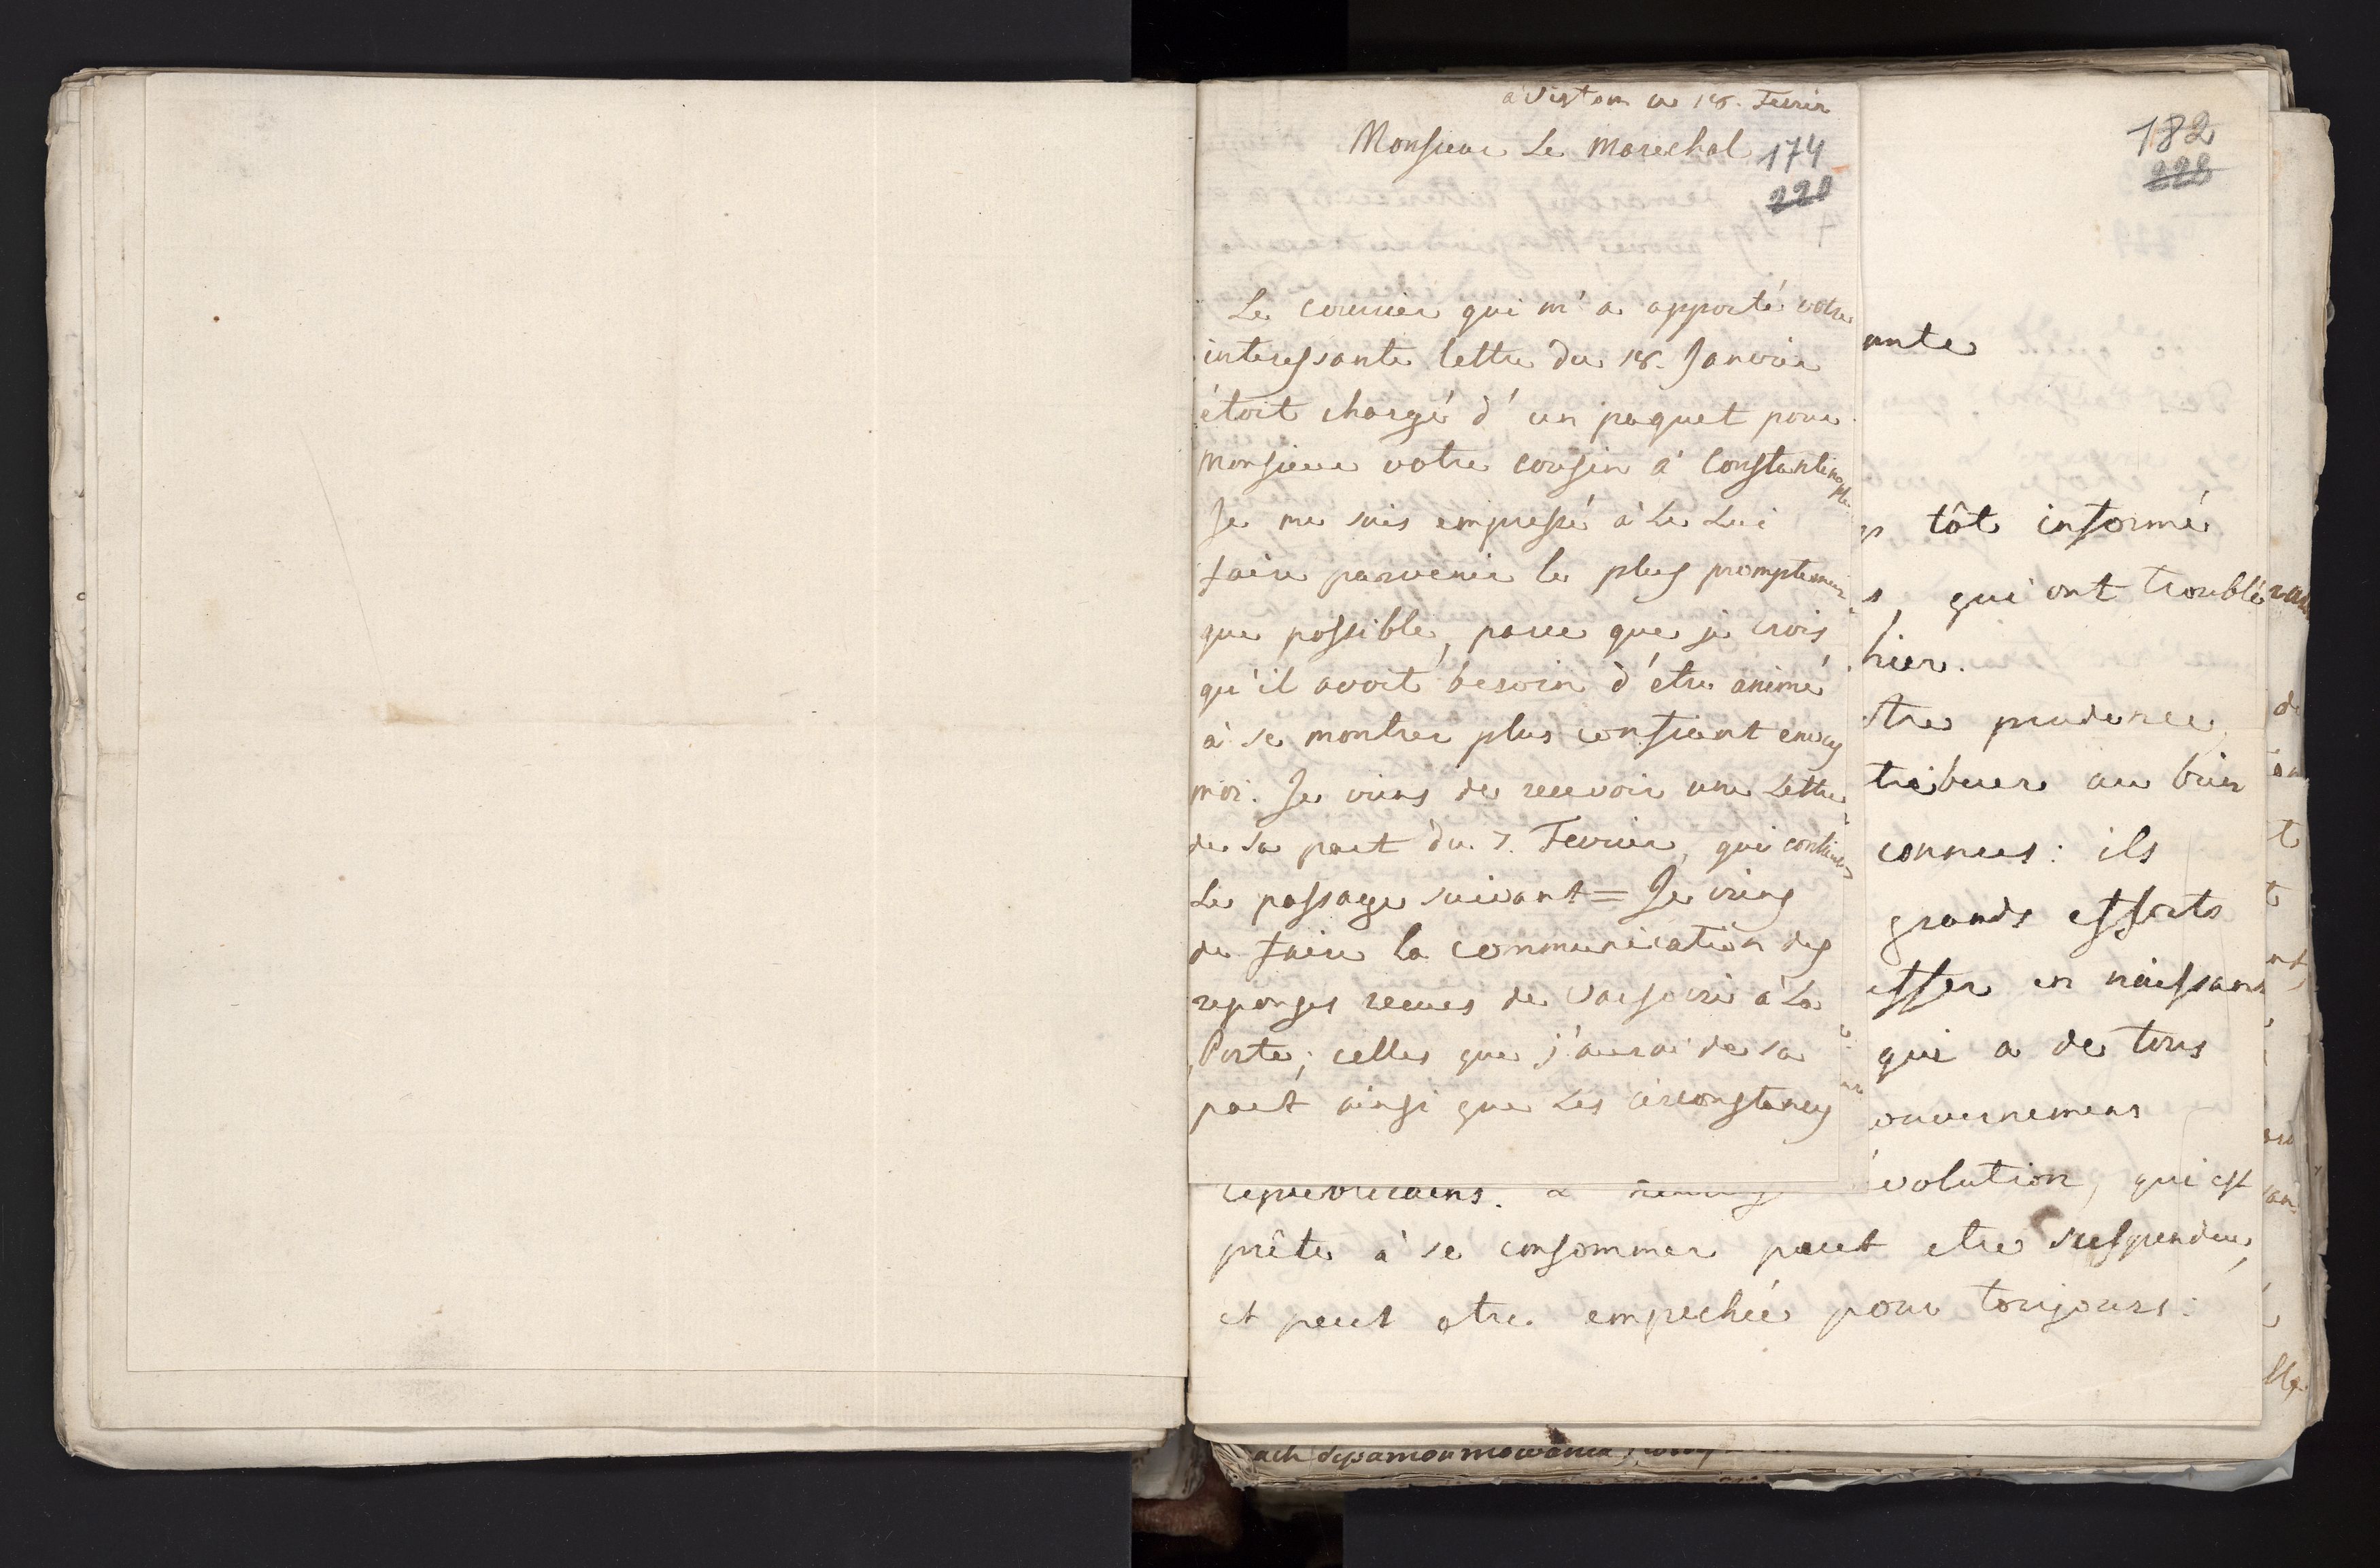 ce 18. Fevrier
Monsieur Le Marechal 174
220
Le courier qui m'a apporté votre
interessante lettre du 18. Janvier
étoit chargé d'un paquet pour
Monsieur votre cousin à Constantinople
Je me suis empressé à Le Lui
faire parvenir le plus promptement
que possible, parce que je crois
qu'il avoit besoin d'étre animé
à se montrer plus confiant envers
moi. Je viens de recevoir une Lettre
de sa part du 7. Fevrier, qui contient
Le passage suivant = Je viens
de faire la communication des
reponses recues de Varsovie à La
Porte; celles que j'aurai de sa
part ainsi que Les circonstances
182
228
tôt informé
, qui ont troublé
hier.
prudence
tribuer au bien
connues: ils
grands efforts
en naissant
qui a de tous
ouvernemens
évolution, qui est
prête à se consommer peut etre suspendue,
et peut etre empechée pour toujours: